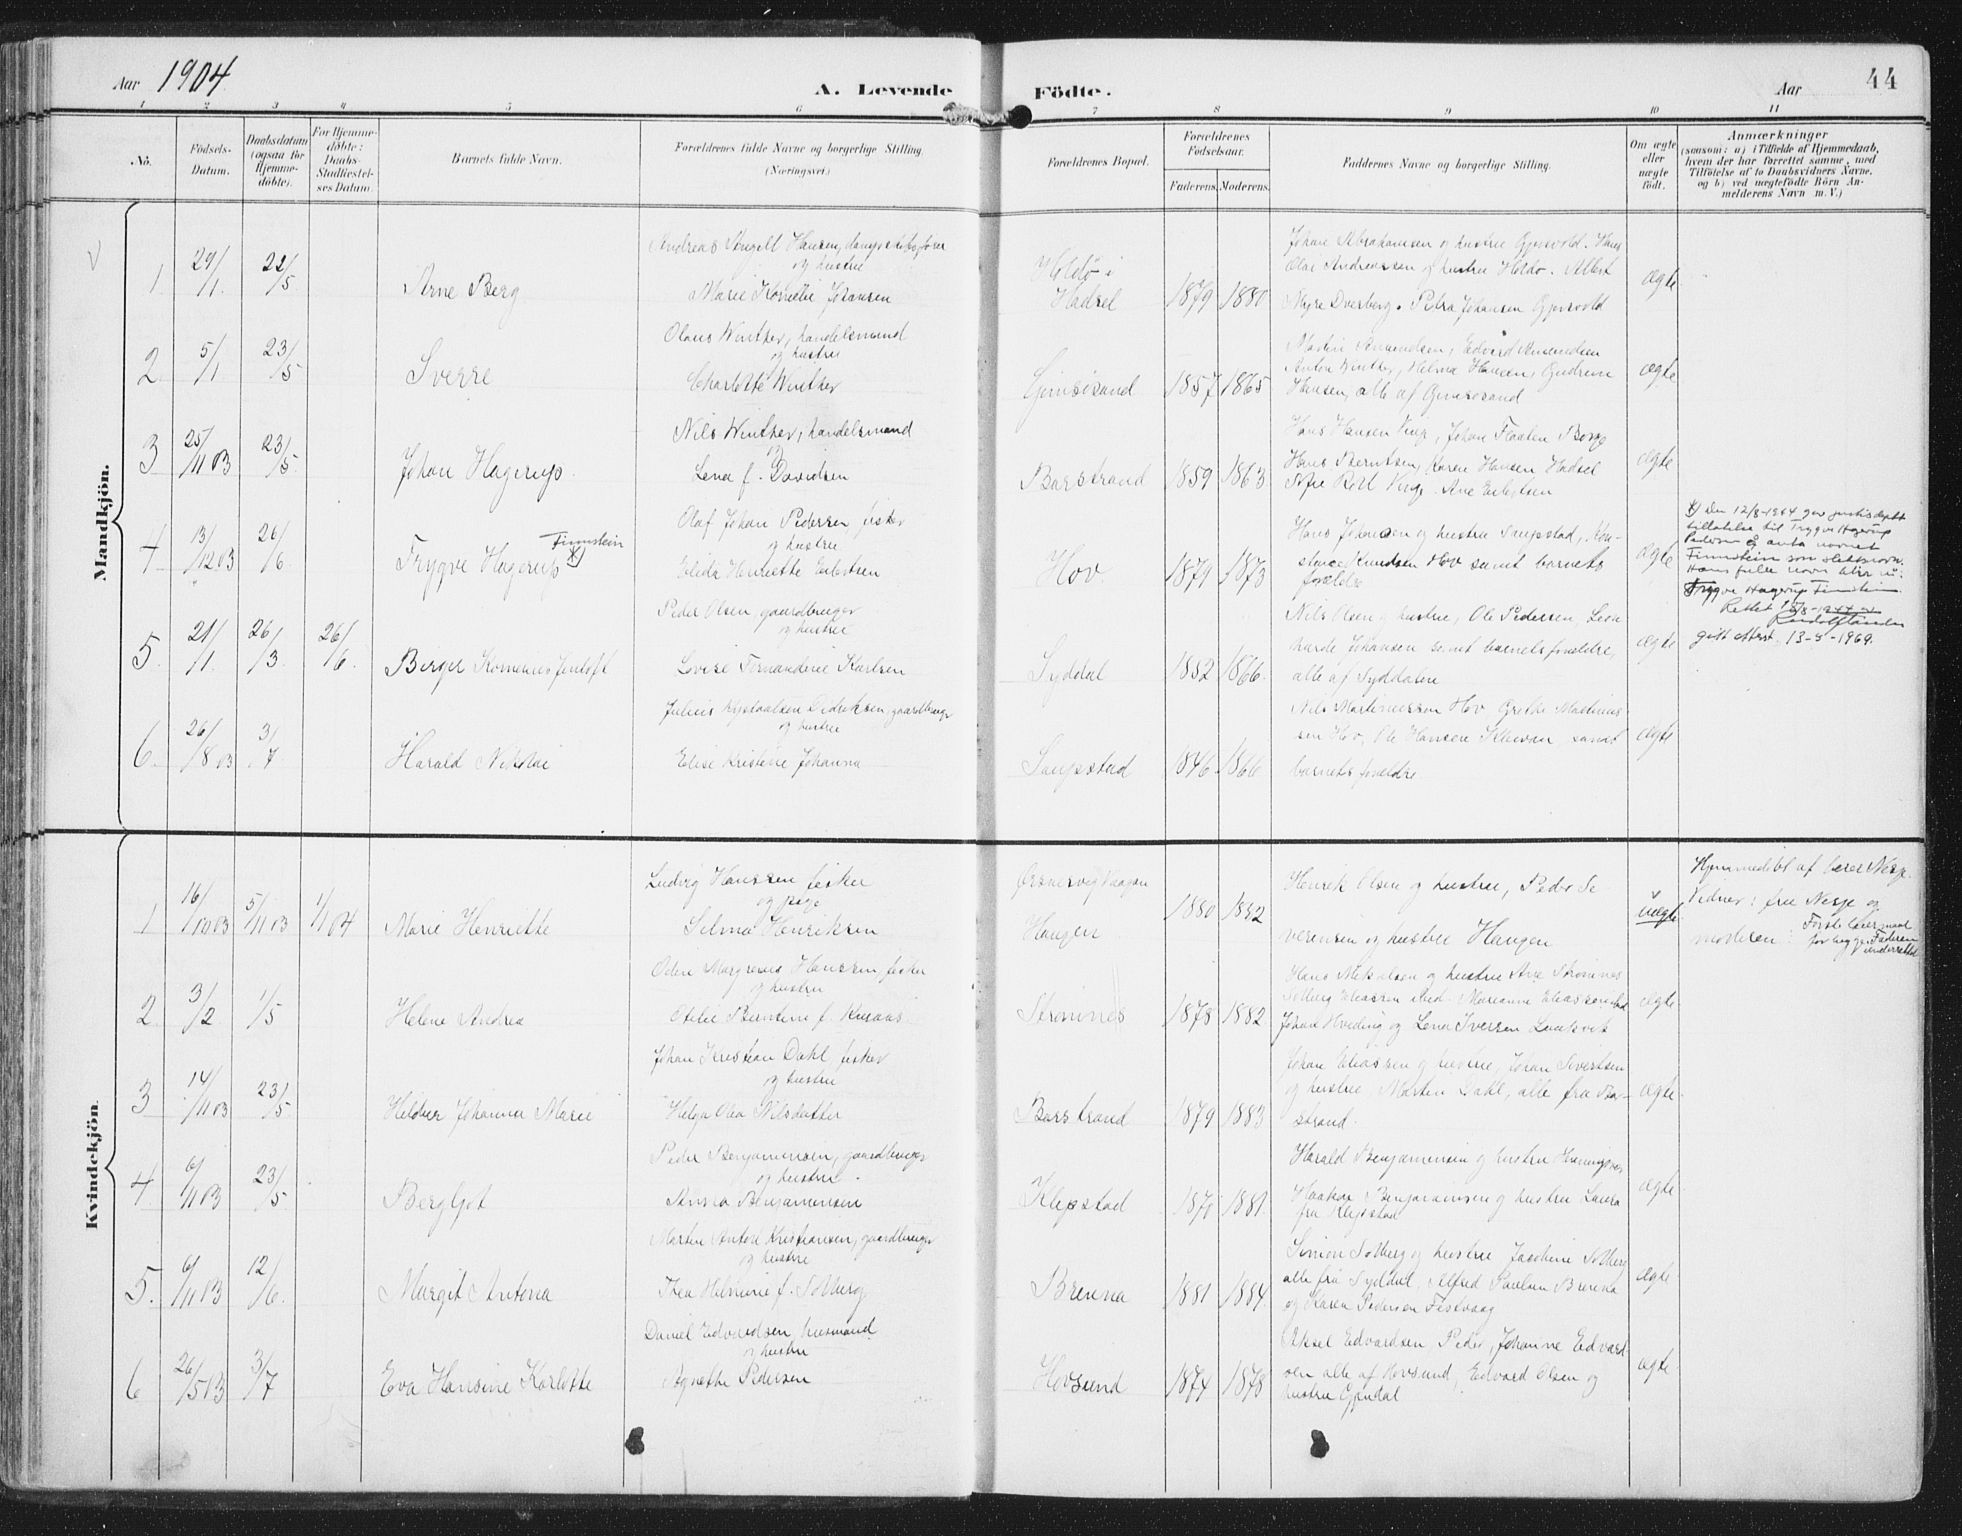 Aar 1904
A. Levende Födte.
Aar
44
1 2 3 4 5 6 7 8 9 10 11
No.
Födsels-Datum.
Daabsdatum (ogsaa for Hjemme-döbte).
For Hjemme-döbte: Daabs-Stadfæstel-ses Datum.
Barnets fulde Navn.
Forældrenes fulde Navne og borgerlige Stilling. (Næringsvei.)
Forældrenes Bopæl.
Forældrenes Födselsaar.
Faderens. Moderens.
Faddernes Navne og borgerlige Stilling.
Om ægte eller uægte födt.
Anmærkninger
(saasom: a) i Tilfælde af Hjemmedaab,
hvem der har forrettet samme, med
Tilföielse af to Daabsvidners Navne,
og b) ved uægtefödte Börn An-
melderens Navn m. V.)
Mandkjön.
Andreas Hansen, dampskibsfører
og hustru
1 29/1 22/5 Arne Berg Marie Johansen
Holdö i Hadsel 1879 1880
Johan Abrahamsen og hustru Gjersvold. Hans
Olai Andreassen og hustru Holdö. Albert
Myre Dverberg. Petra Johansen Gjersvold
ægte
Olaus Winther, handelsmand
og hustru
2 5/1 23/5 Sverre Charlotte Winther
Gimsösand 1857 1865
Martin Amundsen, Edvard Amundsen
Anton Winther, Helma Hansen, Gudrun
Hansen, alle af Gimsösand
ægte
Nils Winther, handelsmand
3 25/11 03 23/5 Johan Hagerup. Lena f. Davidsen
Barstrand 1859 1863
Hans Hansen Vinje, Johan Flaaten Borg
Hans Berntsen, Karen Hansen Hadsel
ægte
Olaf Johan Pedersen, fisker
og hustru
4 13/12 03 26/6 Trygve Hagerup x) Finnstein
Elida Henriette Eilertsen
Hov. 1879 1873
Hans Johansen og hustru Saupstad, Kon-
stance Knudsen Hov samt barnets
forældre
ægte
x) Den 12/8-1964 gav justisdept
tillatelse til Trygve Hagerup
Pedersen å anta navnet
Finnstein som slektsnavn.
Hans fulle navn blir nu:
Trygve Hagerup Finnstein.
Rettet
gitt attest 13-5-1969.
Peder Olsen, gaardbruger
og hustru
5. 21/1 26/3 26/6 Birger Jentoft
Lovise Fernandine Karlsen
Syddal 1852 1866
Nils Olsen og hustru, Ole Pedersen, Leon
harde Johansen samt barnets forældre,
alle af Syddalen
ægte
Julius Didriksen, gaardbruger
og hustru
6. 26/8 03 3/7 Harald Nikolai Elise Kristine Johanna
Saupstad 1846 1866
Nils Martinussen Hov Grethe Martinus-
sen Hov, Ole Hansen samt
barnets forældre
ægte
Kvindekjön.
Ludvig Hanssen fisker
og pige
1 16/10 03 5/11 03 1/1 04 Marie Henriette Selma Henriksen
Ørsnesvig Vaagan
Haugen 1880 1882
Henrik Olsen og hustru, Peder Se-
verensen og hustru Haugen
uægte
Hjemmedöbt af lærer Nesje
Vidner: fru Nesje og
moderen: Første leiermaal
for begge Faderen
underrettet
Odin Margrenus Hanssen, fisker
og hustru
2 3/2 1/5 Helene Andrea Otelie Berntine f.
Strømnes 1878 1882
Hans Nikolaisen og hustru Ane Strømnes
Solberg Eliassen Marianne Eliassen
Johan Hveding og Lena Iversen Lauksvik
ægte
Johan Kristian Dahl, fisker
og hustru
3 14/11 03 23/5 Heldur Johanna Marie Helga Olea Nilsdatter
Barstrand 1879 1883
Johan Eliassen og hustru, Johan Sivertsen
og hustru, Morten Dahl, alle fra Bar-
strand.
ægte
Peder Benjaminsen, gaardbruger
og hustru.
4 6/11 03 23/5 Bergljot Anna Benjaminsen
Klepstad 1870 1881
Harald Benjaminsen og hustru Henningsvær
Haakon Benjaminsen og hustru Laura
fra Klepstad
ægte
Martin Anton Kristiansen, gaardbruger
og hustru
5. 6/11 03 12/6 Margit Antona Thea Helmine f. Solberg
Brenna 1881 1884
Simon Solberg og hustru Jacobine Solberg
alle fra Syddal, Alfred Paulsen Brenna
og Karen Pedersen Festvaag
ægte
Daniel Edvardsen, husmand
og hustru
6 26/5 03 3/7 Eva Hansine Karlotte Agnethe Pedersen
Hovsund 1874 1878
Aksel Edvardsen Peder, Johanne Edvard
sen alle af Hovsund, Edvard Olsen og
hustru Gjøndal
ægte